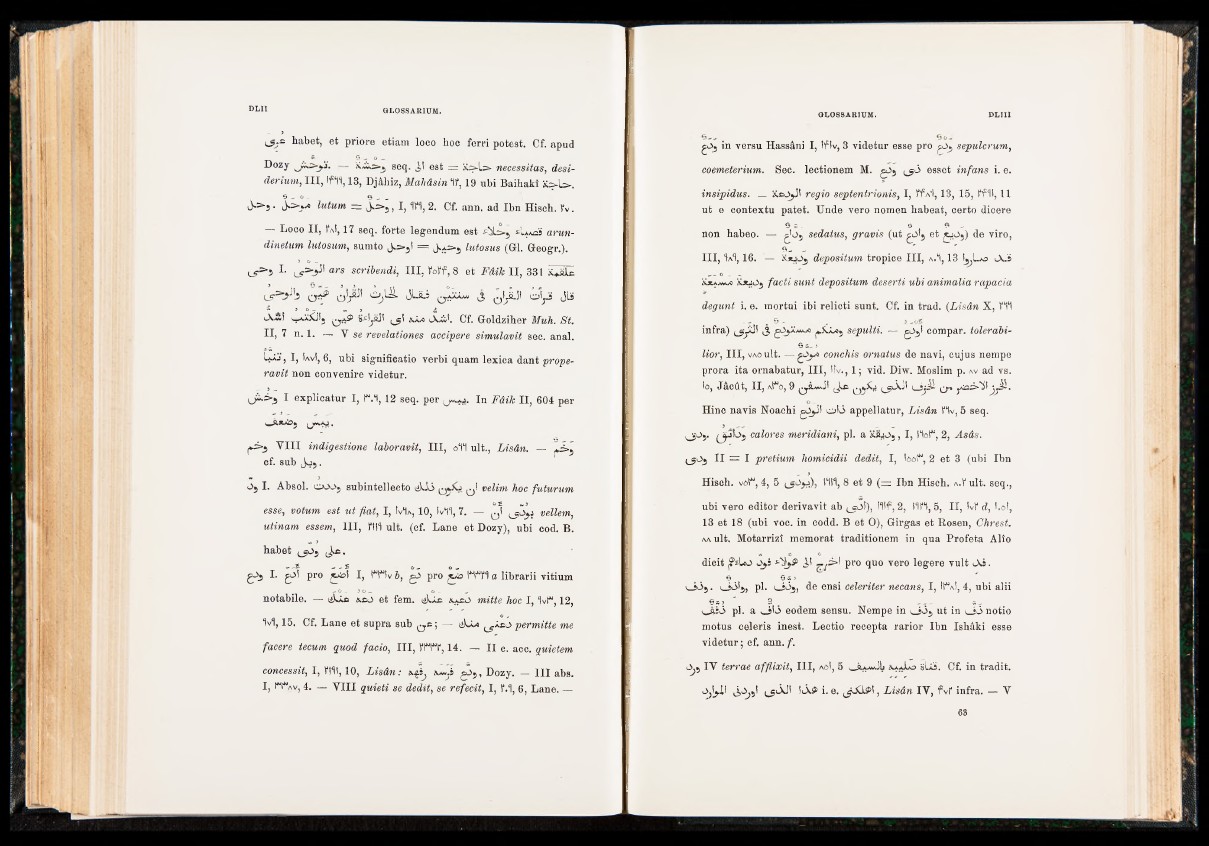 DLII GLOSSARIUM.
عُرِى habet, et priore etiam loco hoc ferri potest. Cf. apud
Dozy توحّش. — وَحْشَة seq. الى est = حاجة necessitas, desi-
derium, III, ١٣٩٩, 13, Djâhiz, Mahâsin ٩٢, 19 ubi Baihakî حاجة.
وحل. مَوْحَل lutum = وَحَل, I, ٩٣٩, 2. Cf. ann. ad Ibn Hisch. ٢٧.
— Loco II, ٢٨١, 17 seq. forte legendum est قصباء وحلاء arun-
dinetum lutosum, sumto اوحل = وحيل lutosus (Gl. Geogr.).
وحى I. الوحى ars scribendi, III, ٢٥٢٣, 8 et Fâik II, 331 علقمة
قال قرأت القرآن فى سنتين فقال الحارث القرآن هيّن والوحى
اشدّ منه اى القراءة هيّن والكتب اشدّ. Cf. Goldziher Muh. St.
II, 7 n. 1. — V se revelationes accipere simulavit sec. anal.
تنبّأ, I, ١٨٧١, 6, ubi significatio verbi quam lexica dant prope-
ravit non convenire videtur.
وخش I explicatur I, ٣٠٩, 12 seq. per يبس. In Fâik II, 604 per
يبس وضعف.
وخم VIII indigestione laboravit, III, ٥٦٦ ult., Lisân. — وَخَم
cf. sub وبل.
ودّ I. Absol. وددت subintellecto ان يكون ذلك velim hoc futurum
esse, votum est ut fiat, I, ١٧٩٨, 10, ١٧٦٩, 7. — بودّى أن vellem,
utinam essem, III, ٢١١٩ ult. (cf. Lane et Dozy), ubi cod. B.
habet على ودّى.
ودع I. أدع pro أضع I, ٣٣١٧ b, دع pro ضع ٣٣٢٩ a librarii vitium
notabile. — دعه عنك et fem. دعيه عنك mitte hoc I, ٩٧٣, 12,
٩٧٩, 15. Cf. Lane et supra sub عن; — دعنى منك permitte me
facere tecum quod facio, III, ٢٣٣٢, 14. — II c. acc. quietem
concessit, I, ٢١٩١, 10, Lisân: ودع فرسه رفّهه, Dozy. — III abs.
I, ٣٣٨٧, 4. — VIII quieti se dedit, se refecit, I, ٢٠٩, 6, Lane. —
GLOSSARIUM. DLIII
وَدَع in versu Hassâni I, ١٤١٧, 3 videtur esse pro وَدْع sepulcrum,
coemeterium. Sec. lectionem M. ذى وَدَع esset infans i. e.
insipidus. — الودعة regio septentrionis, I, ٢٤٨٩, 13, 15, ٢٤٩١, 11
ut e contextu patet. Unde vero nomen habeat, certo dicere
non habeo. — وداع sedatus, gravis (ut وادع et وديع) de viro,
III, ٩٨٩, 16. — وديعة depositum tropice III, ٨٠٩, 13 قد صاروا
وديعة مسبعة facti sunt depositum deserti ubi animalia rapacia
degunt i. e. mortui ibi relicti sunt. Cf. in trad. (Lisân X, ٢٦٦
infra) وميكم مستودع فى الثرى sepulti. — أودع compar. tolerabi-
lior, III, ٧٨٥ ult. — مودع conchis ornatus de navi, cujus nempe
prora ita ornabatur, III, ١١٧٠, 1; vid. Diw. Moslim p. ٨٧ ad vs.
١٥, Jâcût, II, ٨٣٥, 9 الخرز الاخضر من الودع الذى يكون على السفن.
Hinc navis Noachi ذات الودع appellatur, Lisân ٢٦٧, 5 seq.
ودق. ودائق calores meridiani, pl. a وديقة, I, ١٩٥٣, 2, Asâs.
ودى II = I pretium homicidii dedit, I, ١٥٥٣, 2 et 3 (ubi Ibn
Hisch. ٧٥٣, 4, 5 يودى), ١٩١٩, 8 et 9 (= Ibn Hisch. ٨٠٢ ult. seq.,
ubi vero editor derivavit ab ادّى), ١٩١٤, 2, ١٩٢٩, 5, II, ١٧٢ d, ١٠٥١,
13 et 18 (ubi voc. in codd. B et O), Girgas et Rosen, Chrest.
٨٨ ult. Motarrizî memorat traditionem in qua Profeta Alîo
dicit اخرج الى هؤلاء فود دماءهم pro quo vero legere vult فد.
وذف. واذف, pl. وُذُف, de ensi celeriter necans, I, ١٣٨١, 4, ubi alii
ذُفُف pl. a ذاف eodem sensu. Nempe in وذف ut in ذفّ notio
motus celeris inest. Lectio recepta rarior Ibn Ishâki esse
videtur; cf. ann. f.
ورد IV terrae afflixit, III, ٨٥١, 5 قتلة صليبه بالسيف. Cf. in tradit.
هذا الذى اوردنى الموارد i. e. اهلكنى, Lisân IV, ٤٧٢ infra. — V
63